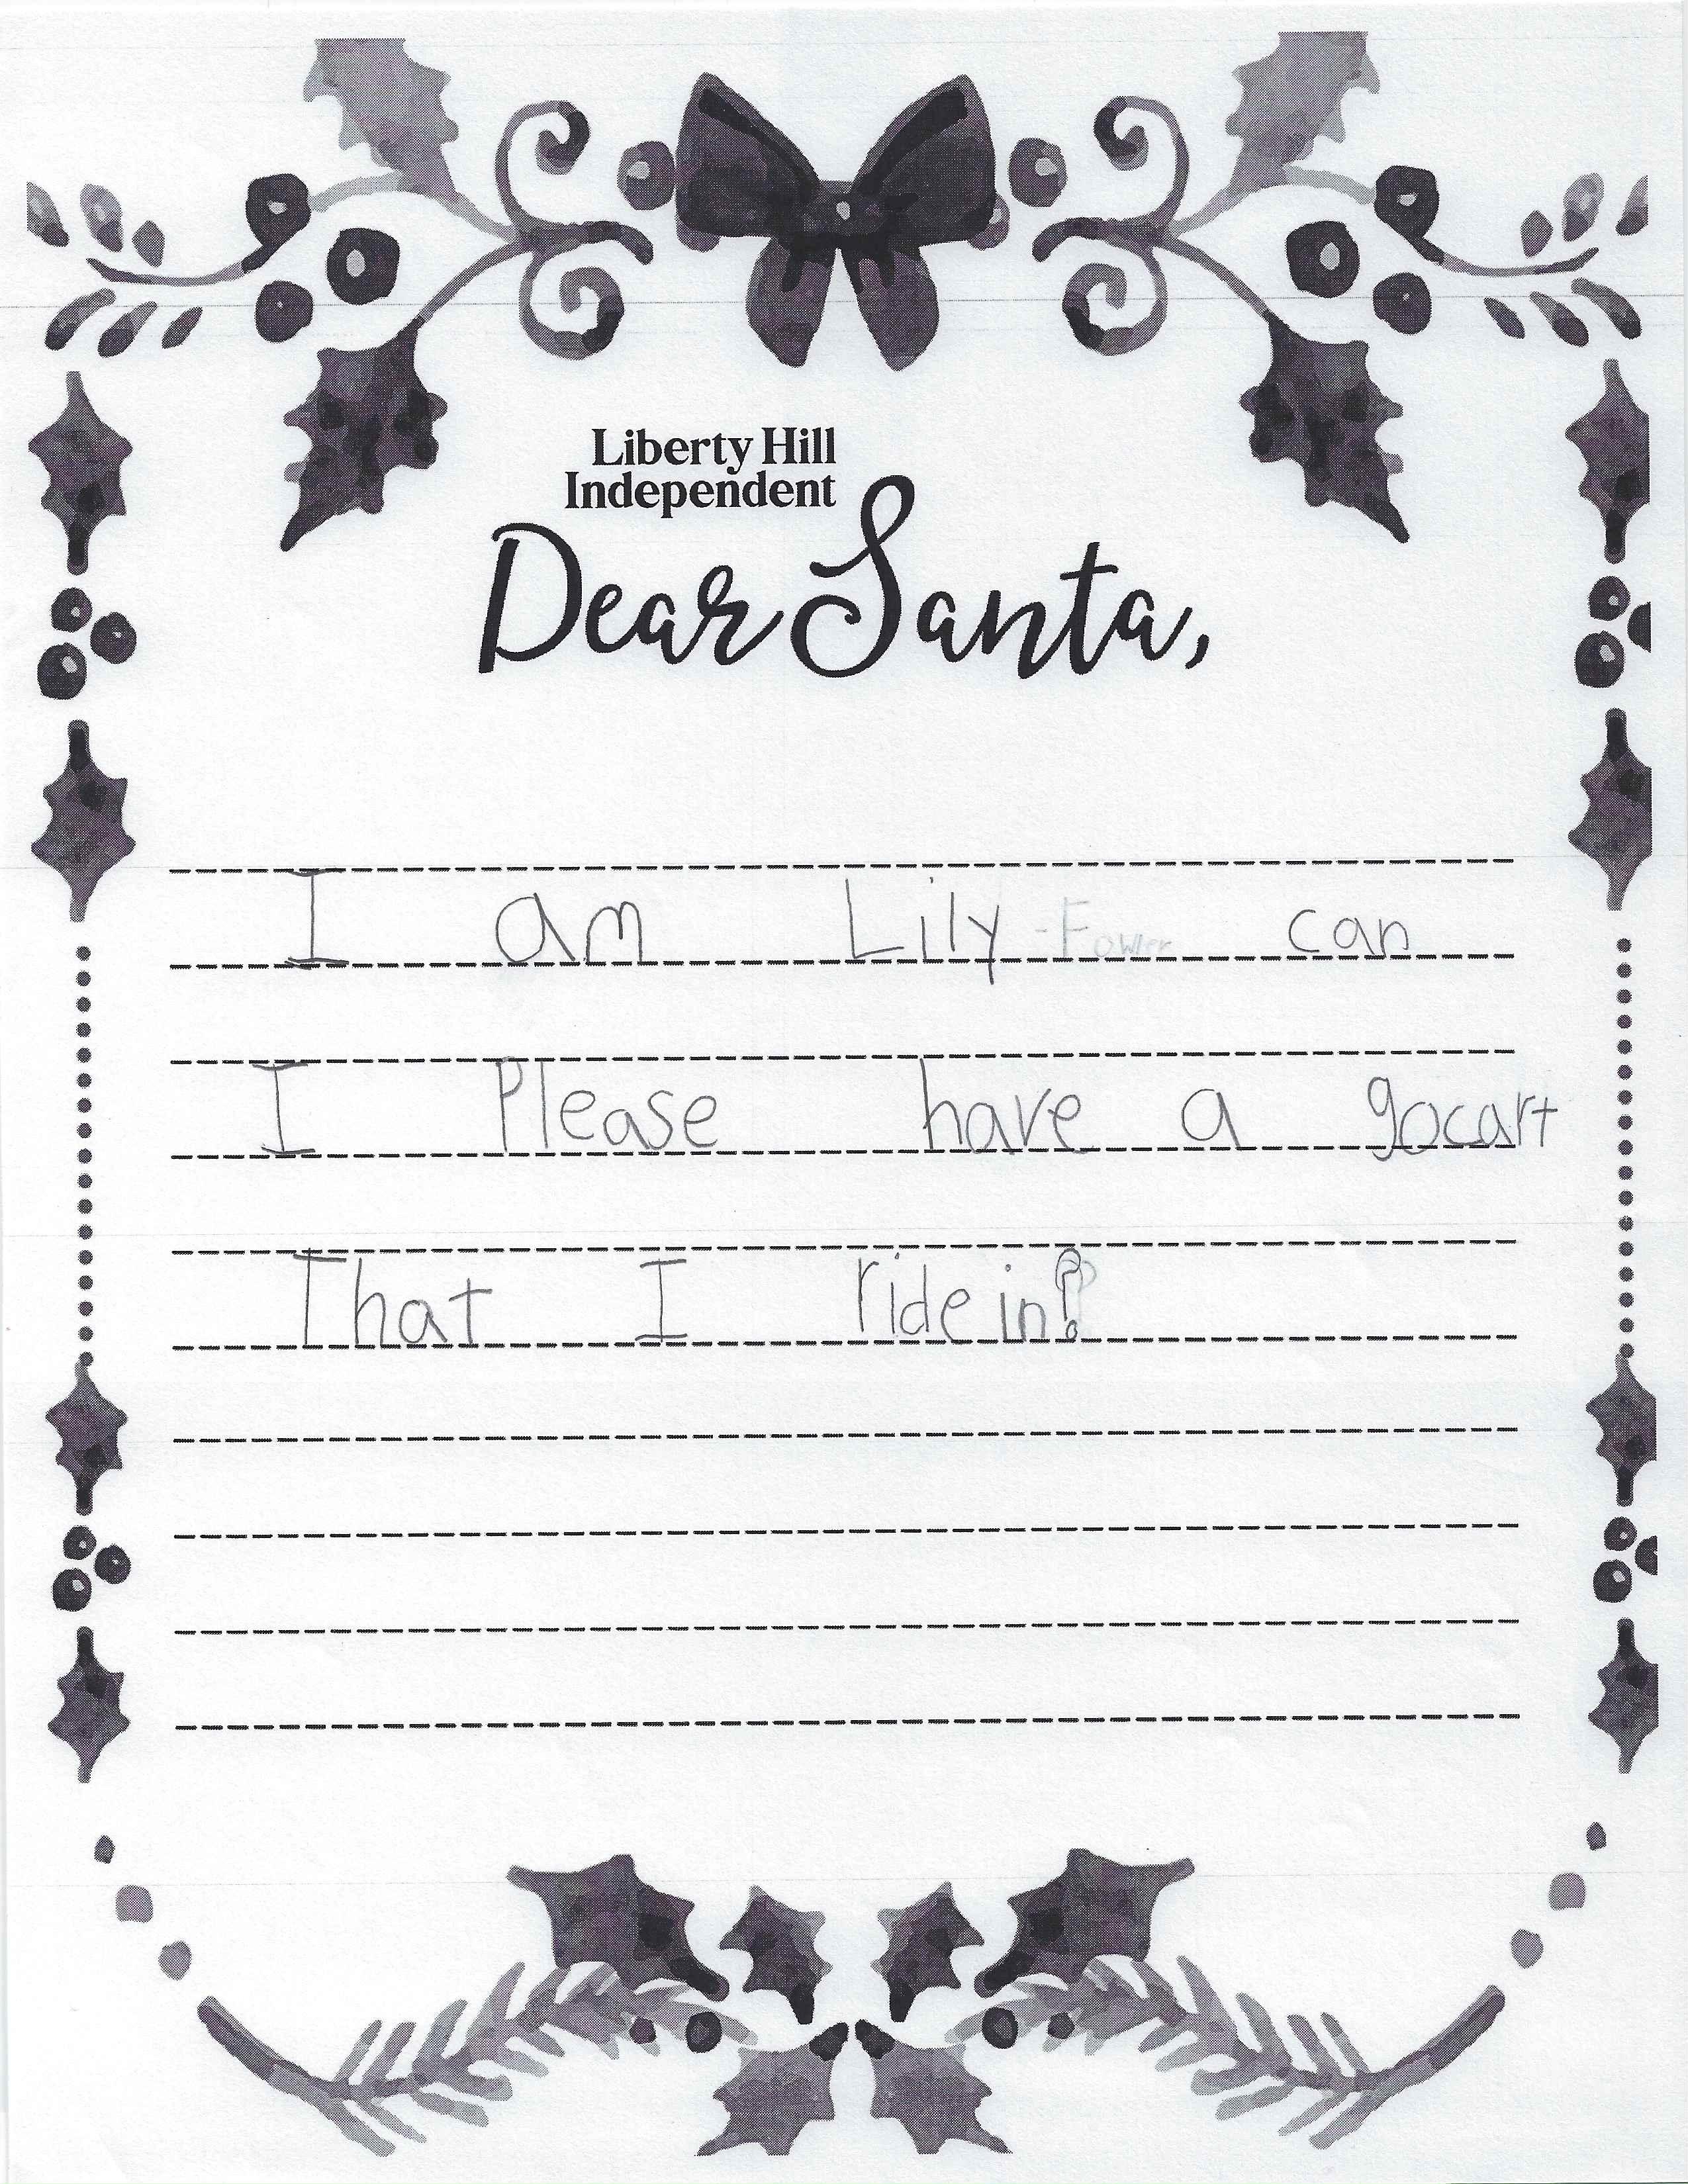 Liberty Hill
Independent
Dear Santa,
I am Lily -Fowler can
I Please have a gocart
That I ride in?